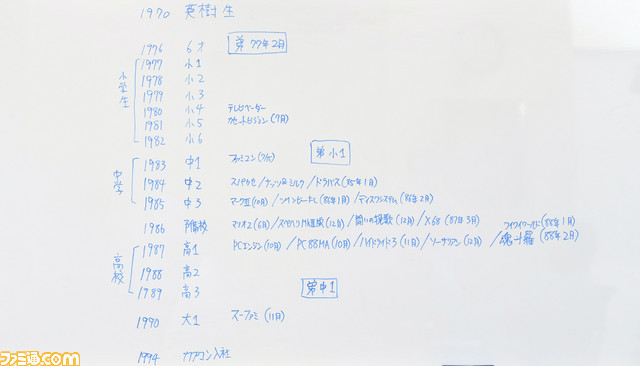 1970 英樹 生
1976 6才 弟 77年2月
小学生
1977 小1
1978 小2
1979 小3
1980 小4 テレビベーダー
1981 小5 カセットビジョン(7月)
1982 小6
弟 小1
中学
1983 中1 ファミコン
1984 中2 スパルカゼ/ナッツ&ミルク/ドラバス(85年1月)
1985 中3 マークIII(10月)/ツインビー/ディスクシステム(86年2月)
1986 予備校 マリオ2(6月)/スペハリMk直後(12月)/闘いの挽歌(12月)/X68(87年3月)
ワイワイワールド(88年1月)
高校
1987 高1 PCエンジン(10月)/PC88MA(10月)/ハイドライド3(11月)/ソーサリアン(12月)/魂斗羅(88年2月)
1988 高2
1989 高3
弟 中1
1990 大1 スーファミ(11月)
1994 カプコン入社
ファミ通.com